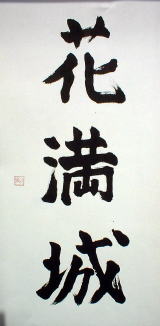 花満城